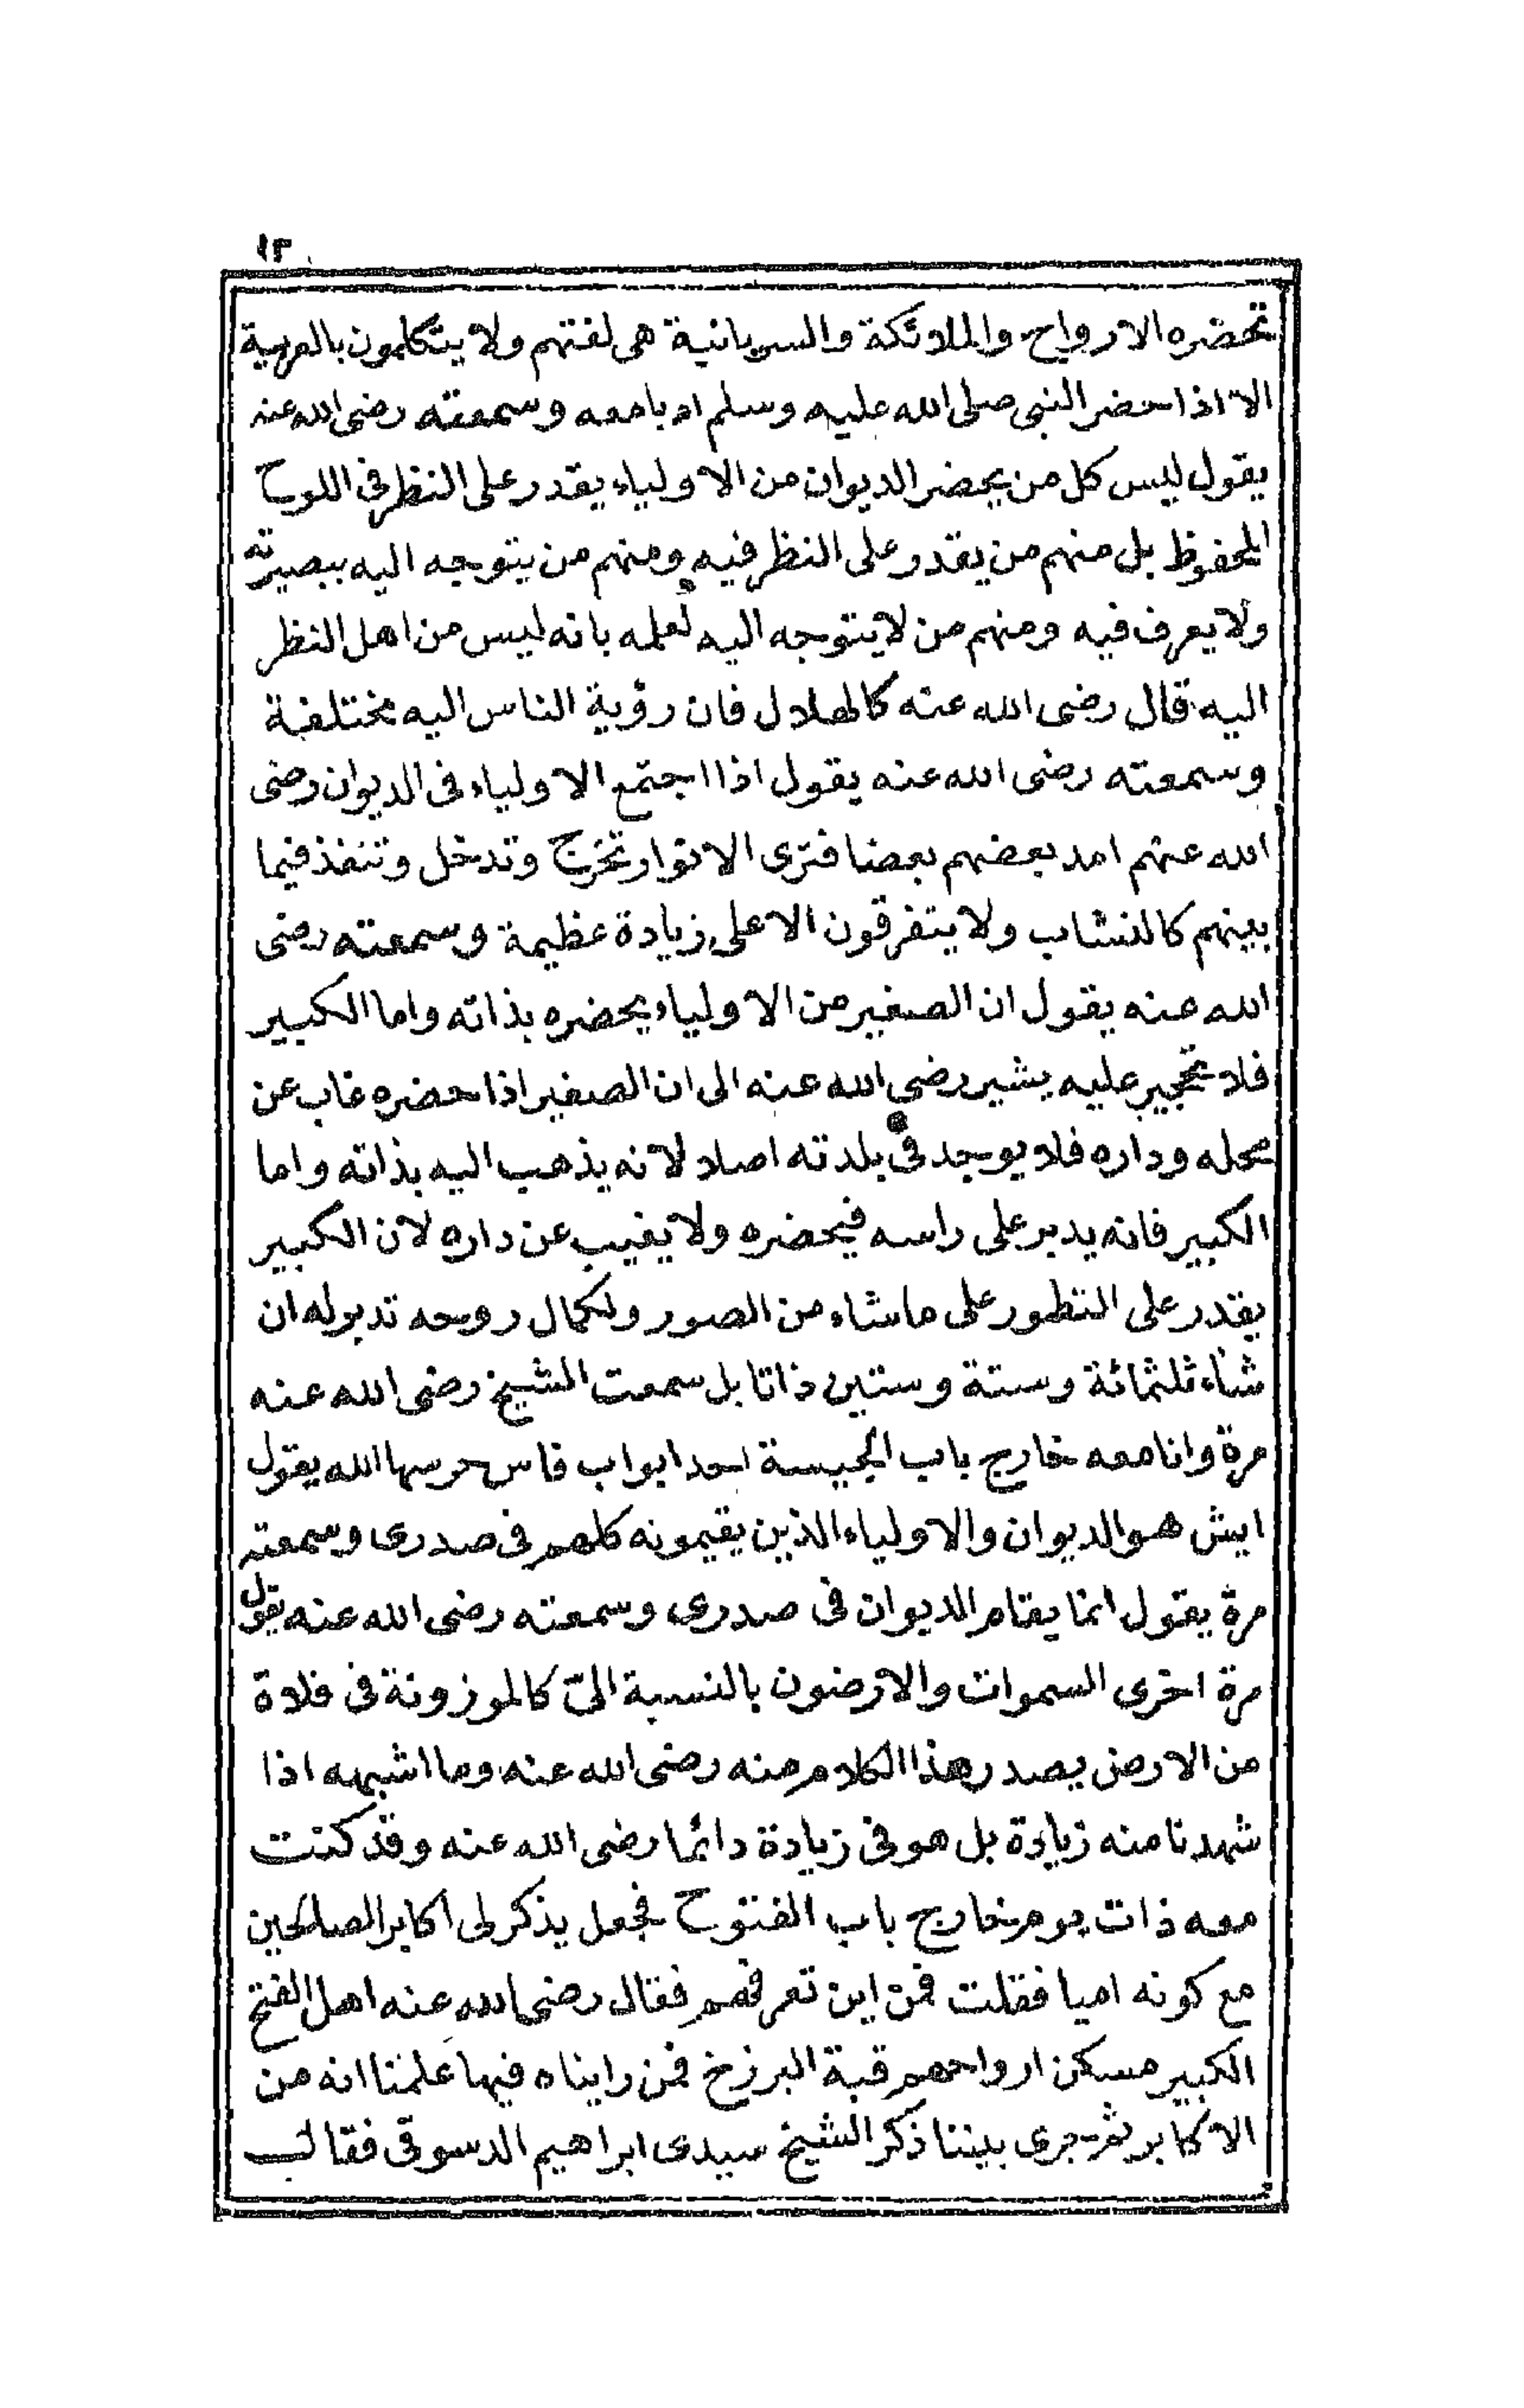 ١٣
تحضره الارواح والملائكة والسريانية هى لغتهم ولا يتكلمون بالعربية
الا اذا حضر النبى صلى الله عليه وسلم ادبا معه وسمعته رضى الله عنه
يقول ليس كل من يحضر الديوان من الاولياء يقدر على النظر فى اللوح
المحفوظ بل منهم من يقدر على النظر فيه ومنهم من يتوجه اليه ببصيرته
ولا يعرف فيه ومنهم من لا يتوجه اليه لعلمه بانه ليس من اهل النظر
اليه قال رضى الله عنه كالهلال فان رؤية الناس اليه مختلفة
وسمعته رضى الله عنه يقول اذا اجتمع الاولياء فى الديوان رضى
الله عنهم امد بعضهم بعضا فترى الانوار تخرج وتدخل وتنفذ فيما
بينهم كالنشاب ولا يتفرقون الا على زيادة عظيمة وسمعته رضى
الله عنه يقول ان الصغير من الاولياء يحضره بذاته واما الكبير
فلا تحجير عليه يشير رضى الله عنه الى ان الصغير اذا حضره غاب عن
محله وداره فلا يوجد فى بلدته اصلا لانه يذهب اليه بذاته واما
الكبير فانه يدبر على راسه فيحضره ولا يغيب عن داره لان الكبير
يقدر على التطور على ماشاء من الصور ولكمال روحه تدبر له ان
شاء ثلثمائة وستة وستين ذاتا بل سمعت الشيخ رضى الله عنه
مرة وانا معه خارج باب الجيسة احد ابواب فاس حرسها الله يقول
ايش هو الديوان والاولياء الذين يقيمونه كلهم فى صدرى وسمعته
مرة يقول انما يقام الديوان فى صدرى وسمعته رضى الله عنه يقول
مرة اخرى السموات والارضون بالنسبة الىّ كالموزونة فى فلاة
من الارض يصدر هذا الكلام منه رضى الله عنه وما اشبهه اذا
شهدنا منه زيادة بل هو فى زيادة دائما رضى الله عنه وقد كنت
معه ذات يوم خارج باب الفتوح فجعل يذكر لى اكابر الصالحين
مع كونه اميا فقلت فمن اين تعرفهم فقال رضى الله عنه اهل الفتح
الكبير مسكن ارواحهم قبة البرزخ فمن رايناه فيها علمنا انه من
الاكابر ثم جرى بيننا ذكر الشيخ سيدى ابراهيم الدسوقى فقال